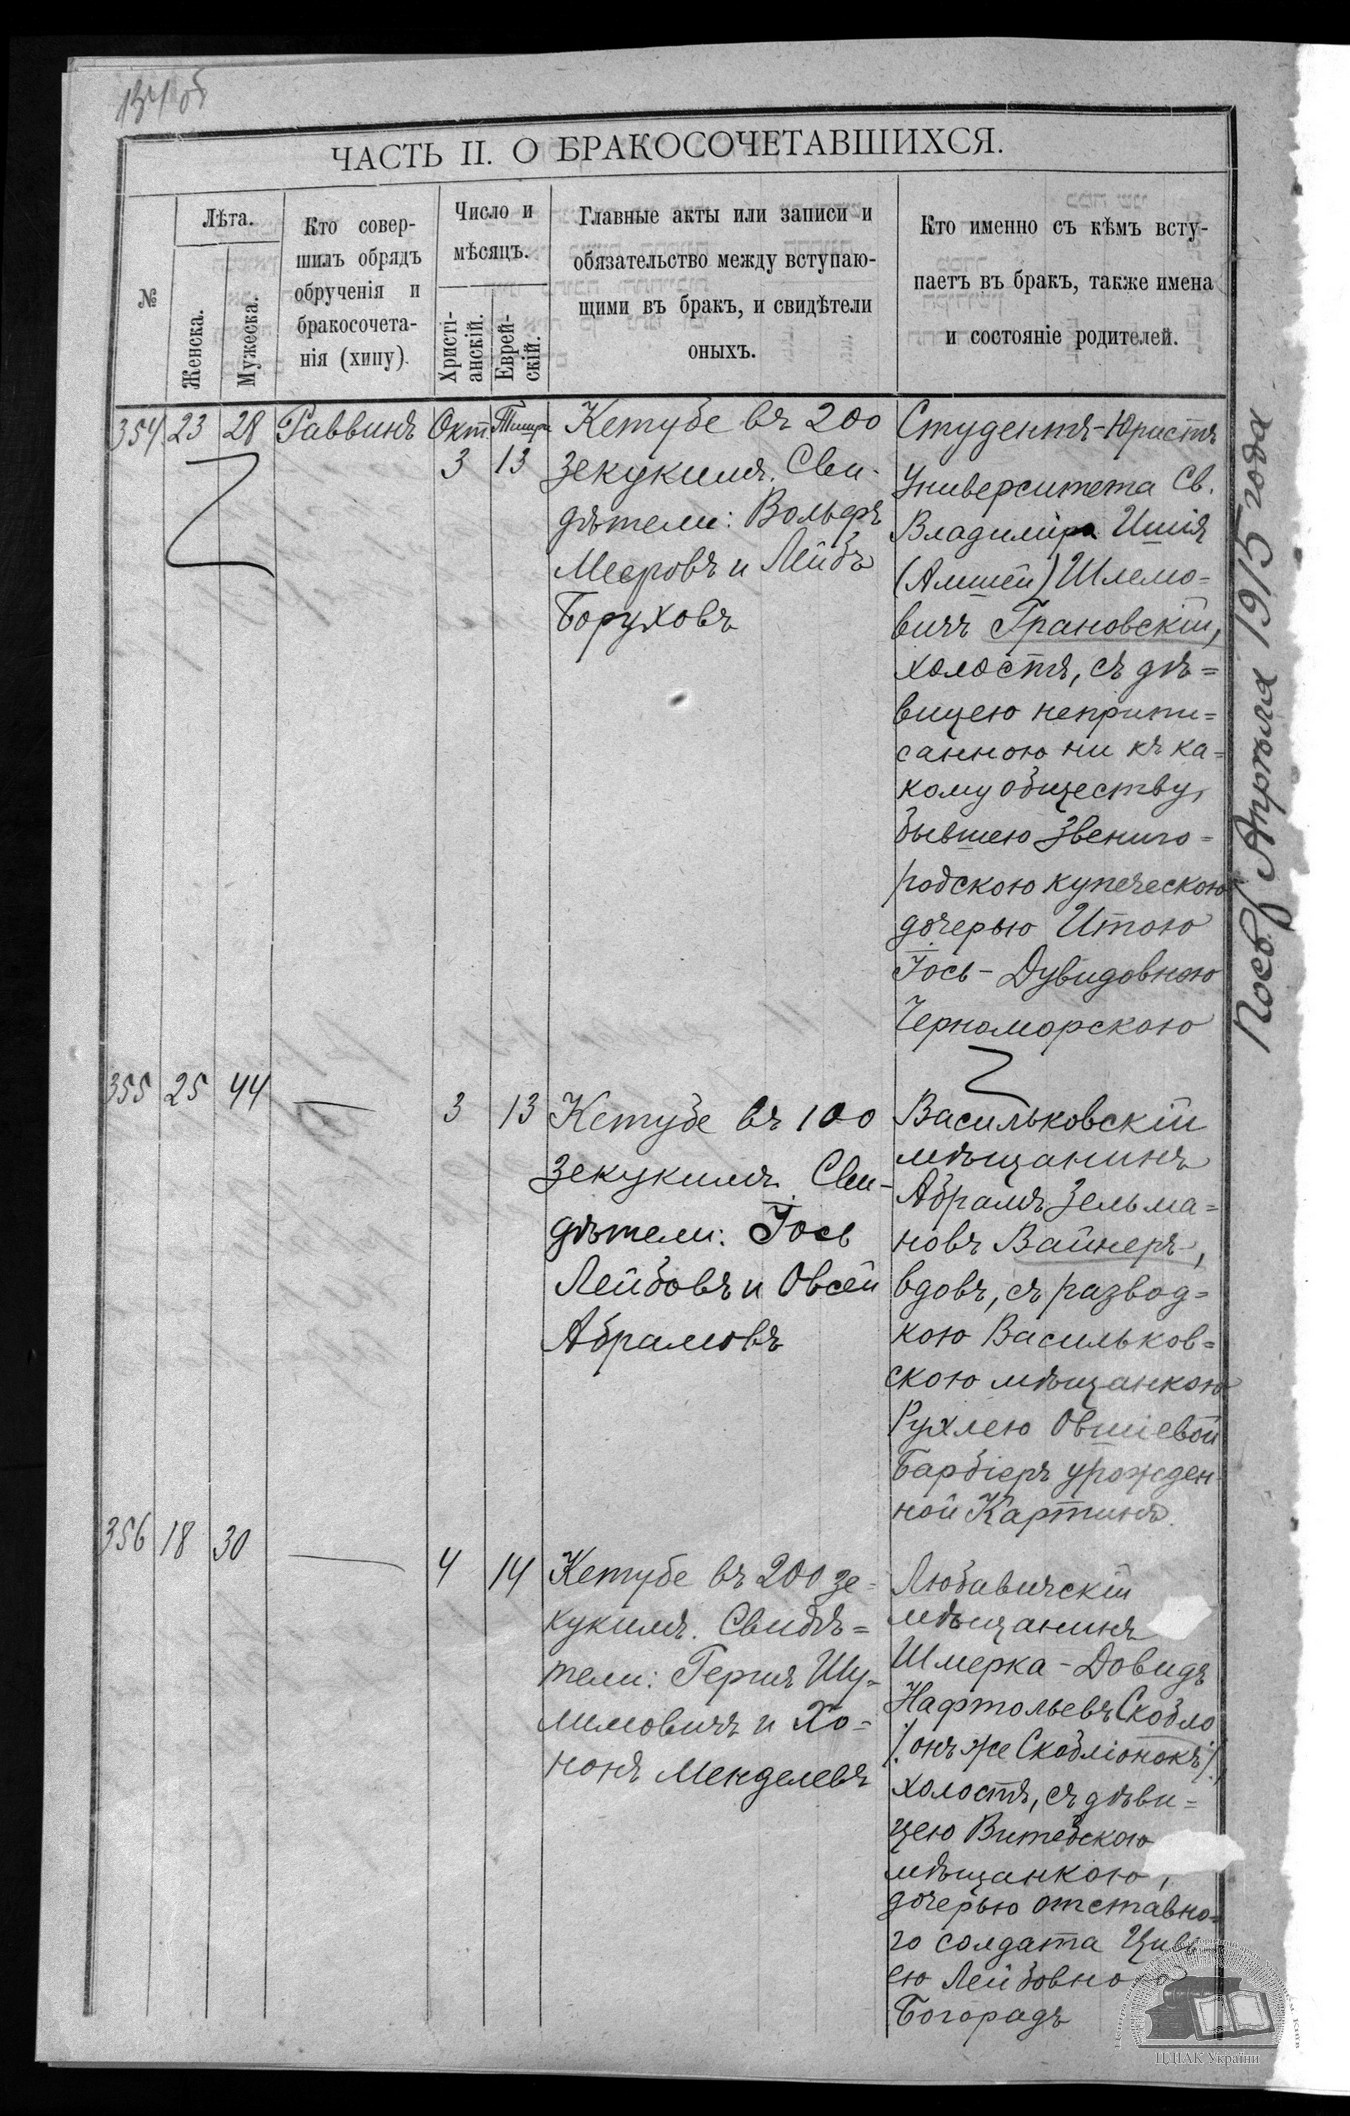 134 об
ЧАСТЬ II. О БРАКОСОЧЕТАВШИХСЯ.
№
Лѣта.
Женска.
Мужеска.
Кто совер-
шилъ обрядъ
обрученія и
бракосочета-
нія (хипу).
Число и
мѣсяцъ.
Христі-
анскій.
Еврей-
скій.
Главные акты или записи и
обязательство между вступаю-
щими въ бракъ, и свидѣтели
оныхъ.
Кто именно съ кѣмъ всту-
паетъ въ бракъ, также имена
и состояніе родителей.
354 23 28 Раввинъ Окт. Тишри
3 13
Кетубе въ 200
зекукимъ. Сви-
дѣтели: Вольфъ
Мееровъ и Лейбъ
Боруховъ
Студентъ-Юристъ
Университета Св.
Владиміра Ишія
(Амшей) Шлемо=
вичъ Грановскій,
холостъ, съ дѣ=
вицею неприпи=
санною ни къ ка=
кому обществу,
бывшею Звениго=
родскою купеческою
дочерью Итою
Іось-Дувидовною
Черноморскою
355 25 44 — 3 13
Кетубе въ 100
зекукимъ. Сви-
дѣтели: Іось
Лейбовъ и Овсей
Абрамовъ
Васильковскій
мѣщанинъ
Абрамъ Зельма=
новъ Вайнеръ,
вдовъ, съ развод=
кою Васильков=
скою мѣщанкою
Рухлею Овшіевой
Барбіеръ урожден
ной Картинъ.
356 18 30 — 4 14
Кетубе въ 200 зе=
кукимъ. Свидѣ=
тели: Герия Шу=
лимовичъ и Хо=
нонъ Менделевъ
Любавичскій
мѣщанинъ
Шмерка-Довидъ
Нафтольевъ Скобло
/:онъ же Скобліонокъ:/,
холостъ, съ дѣви=
цею Витебскою
мѣщанкою,
дочерью отставно=
го солдата Циві
ею Лейбовною
Богорадъ
Посв. Апрѣля 1915 года
ЦДІАК України